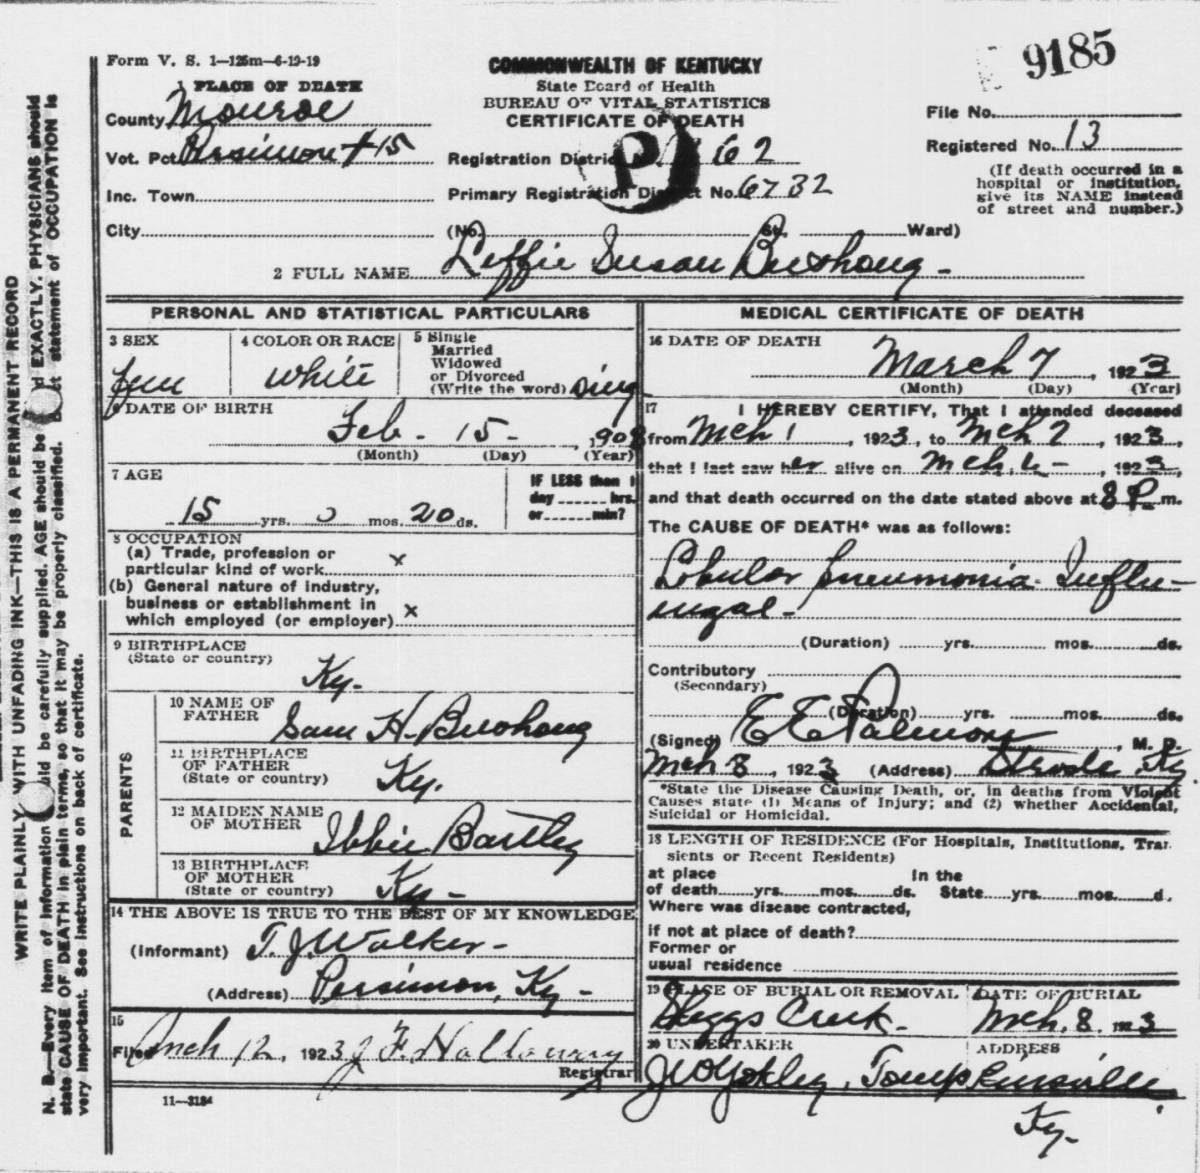 Form V. S. 1—125m—6-19-19
9185
COMMONWEALTH OF KENTUCKY
State Board of Health
BUREAU OF VITAL STATISTICS
CERTIFICATE OF DEATH
1 PLACE OF DEATH
County Monroe
Vot. Pct. Persimon + 15
Inc. Town
City (No. St. Ward)
Registration District 62
Primary Registration District No. 6732
File No.
Registered No. 13
(If death occurred in a
hospital or institution,
give its NAME instead
of street and number.)
2 FULL NAME Leffie Susan Bushong
PERSONAL AND STATISTICAL PARTICULARS
3 SEX fem
4 COLOR OR RACE white
5 Single
Married
Widowed
or Divorced
(Write the word) sing
6 DATE OF BIRTH
Feb - 15 - , 1908
(Month) (Day) (Year)
7 AGE
15 yrs. 0 mos. 20 ds.
IF LESS than 1
day hrs.
or min?
8 OCCUPATION
(a) Trade, profession or
particular kind of work x
(b) General nature of industry,
business or establishment in
which employed (or employer) x
9 BIRTHPLACE
(State or country) Ky.
PARENTS
10 NAME OF
FATHER Sam H. Bushong
11 BIRTHPLACE
OF FATHER
(State or country) Ky.
12 MAIDEN NAME
OF MOTHER Ibbie Bartley
13 BIRTHPLACE
OF MOTHER
(State or country) Ky -
14 THE ABOVE IS TRUE TO THE BEST OF MY KNOWLEDGE
(Informant) T. J. Walker -
(Address) Persimon, Ky -
15
Filed Mch 12, 1923 J F. Holloway
Registrar
11—3184
MEDICAL CERTIFICATE OF DEATH
16 DATE OF DEATH
March 7 , 1923
(Month) (Day) (Year)
17 I HEREBY CERTIFY, That I attended deceased
from Mch 1 , 1923, to Mch 7 , 1923,
that I last saw her alive on Mch. 6 - , 1923,
and that death occurred on the date stated above at 8 P. m.
The CAUSE OF DEATH* was as follows:
Lobular pneumonia - Influ-
ingal -
(Duration) yrs. mos. ds.
Contributory
(Secondary)
(Duration) yrs. mos. ds.
(Signed) E E Palmore , M. D.
Mch 8 , 1923 (Address) Strode, Ky.
*State the Disease Causing Death, or, in deaths from Violent
Causes state (1) Means of Injury; and (2) whether Accidental,
Suicidal or Homicidal.
18 LENGTH OF RESIDENCE (For Hospitals, Institutions, Tran
sients or Recent Residents)
at place In the
of death yrs. mos. ds. State yrs. mos. d.
Where was disease contracted,
if not at place of death?
Former or
usual residence
19 PLACE OF BURIAL OR REMOVAL DATE OF BURIAL
Skeggs Creek. Mch. 8. 1923
20 UNDERTAKER ADDRESS
J W Yokley, Tompkinsville
Ky -
WRITE PLAINLY WITH UNFADING INK—THIS IS A PERMANENT RECORD
N. B.—Every item of information should be carefully supplied. AGE should be stated EXACTLY. PHYSICIANS should
state CAUSE OF DEATH in plain terms, so that it may be properly classified. Exact statement of OCCUPATION is
very important. See instructions on back of certificate.